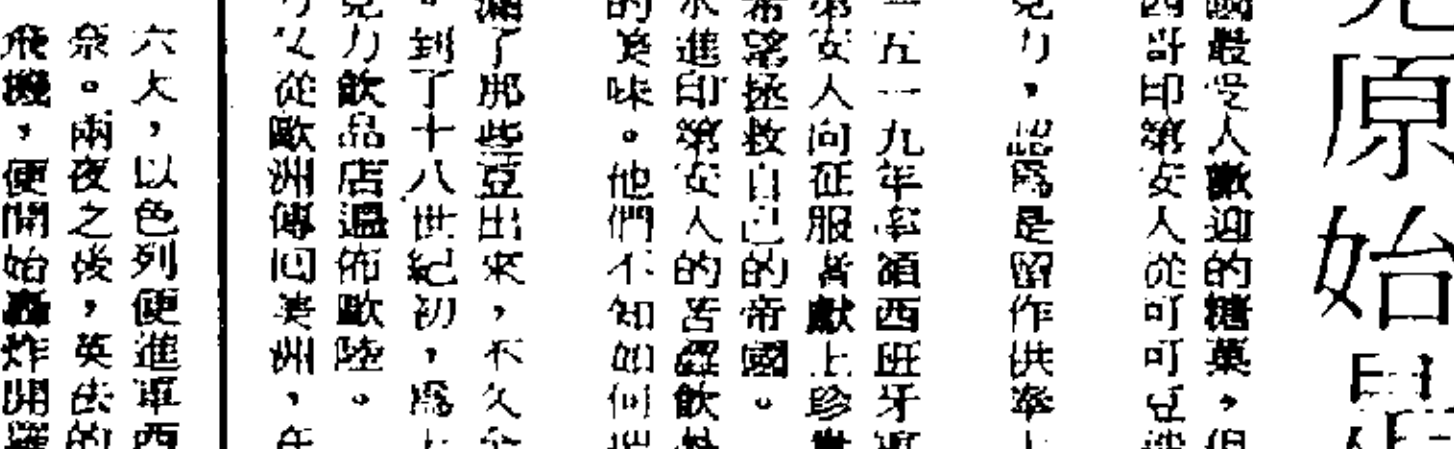 原始
國最受人歡迎的糖菓，但
西哥印第安人從可可豆
克力，認爲是留作供奉上
一五一九年率領西班牙軍
第安人向征服者獻上珍貴
希望拯救自己的帝國。
水進印第安人的苦澀飲
的美味。他們不知如何
滿了那些豆出來，不久
。到了十八世紀初，爲
克力飲品店遍佈歐陸。
力又從歐洲傳回美洲，在
六大，以色列便進軍西
奈。兩夜之後，英法的
飛機，便開始轟炸開羅